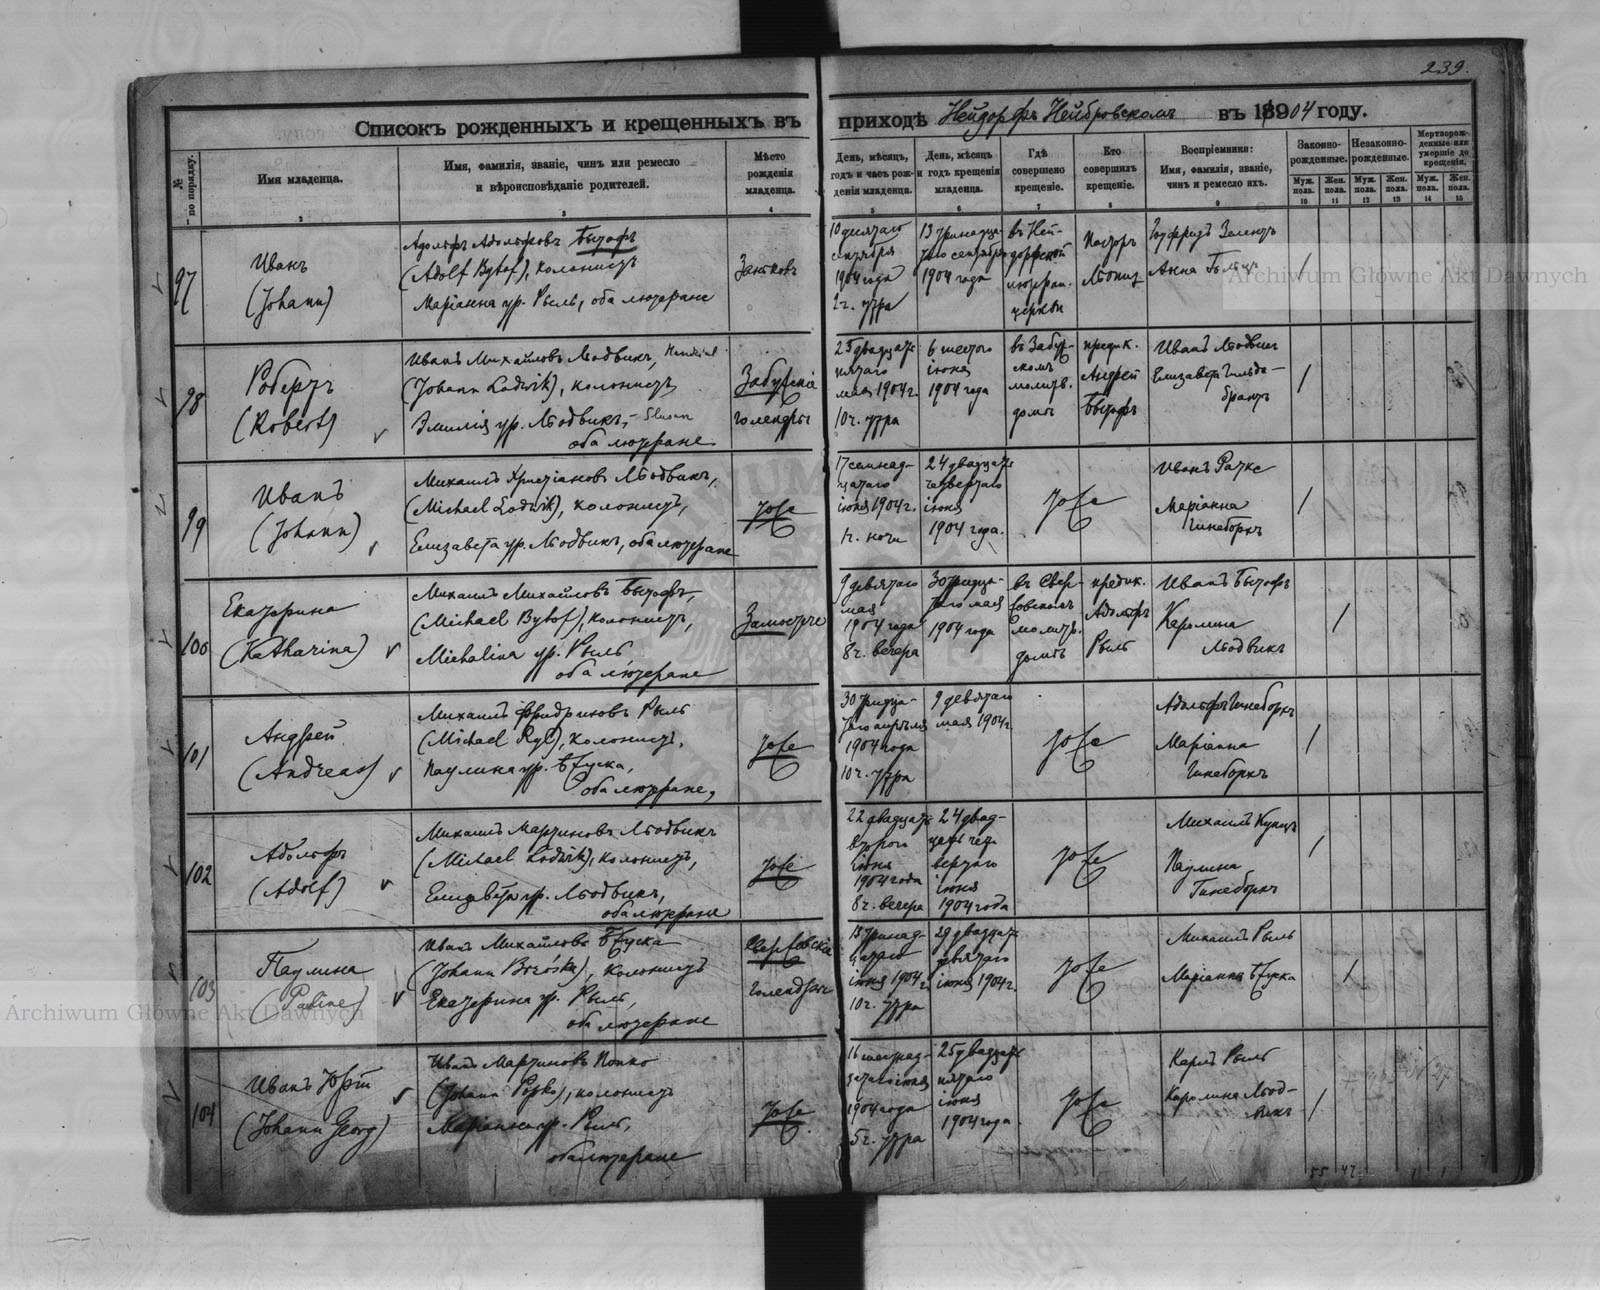 239.
Списокъ рожденныхъ и крещенныхъ въ приходѣ Нейдорфъ Нейбровскомъ въ 1904 году.
№ по порядку.
Имя младенца.
Имя, фамилія, званіе, чинъ или ремесло
и вѣроисповѣданіе родителей.
Мѣсто
рожденія
младенца.
День, мѣсяцъ,
годъ и часъ рож-
денія младенца.
День, мѣсяцъ
и годъ крещенія
младенца.
Гдѣ
совершено
крещеніе.
Кто
совершилъ
крещеніе.
Воспріемники:
Имя, фамилія, званіе,
чинъ и ремесло ихъ.
Законно-
рожденные.
Незаконно-
рожденные.
Мертворож-
денные или
умершіе до
крещенія.
Муж. пола.
Жен. пола.
Муж. пола.
Жен. пола.
Муж. пола.
Жен. пола.
2 3 4 5 6 7 8 9 10 11 12 13 14 15
97
Иванъ
(Johann)
Адольфъ Адольфовъ Бытофъ
(Adolf Bytof), колонистъ
Маріанна ур. Рыль, оба лютеране
10 десятаго
сентября
1904 года
2 ч. утра
13 тринадца-
таго сентября
1904 года
въ Ней-
дорфской
лютеран.
церкви
Пасторъ
Анна
98
Робертъ
(Robert)
Иванъ Михайловъ Людвикъ,
(Johann Ludwik), колонистъ,
Эмилія ур. Людвикъ,
оба лютеране
Забужскіе
голендры
25 двадцать
пятаго
мая 1904 г.
10 ч. утра
6 шестого
іюня
1904 года
въ Забуж-
скомъ
молитв.
домѣ
предик.
Андрей
Бытофъ
Иванъ Людвикъ
Елизавета Гильде-
брантъ
99
Иванъ
(Johann)
Михаилъ Христіановъ Людвикъ,
(Michael Ludwik), колонистъ,
Елизавета ур. Людвикъ, оба лютеране
тоже
17 семнад-
цатаго
іюня 1904 г.
1 ч. ночи
24 двадцать
четвертаго
іюня
1904 года.
тоже
Иванъ Ратке
Маріанна
Гинеборкъ
100
Екатерина
(Katharina)
Михаилъ Михайловъ Бытофъ,
(Michael Bytof), колонистъ,
Michalina ур. Рыль
оба лютеране
Замостче
9 девятаго
мая
1904 года
8 ч. вечера
30 тридца-
таго мая
1904 года
въ Свер-
жовскомъ
молитв.
домѣ
предик.
Адольфъ
Рыль
Иванъ Бытофъ
Каролина
Людвикъ
101
Андрей
(Andreas)
Михаилъ Фридриховъ Рыль
(Michael Ryl), колонистъ,
Паулина ур. Бжуска,
оба лютеране,
тоже
30 тридца-
таго апрѣля
1904 года
10 ч. утра
9 девятаго
мая 1904 г.
тоже
Адольфъ Гинеборкъ
Маріанна
Гинеборкъ
102
Адольфъ
(Adolf)
Михаилъ Мартиновъ Людвикъ
(Michael Ludwik), колонистъ,
Елизавета ур. Людвикъ,
оба лютеране
тоже
22 двадцать
второго
іюня
1904 года
8 ч. вечера
24 двад-
цать чет-
вертаго
іюня
1904 года
тоже
Михаилъ Кунцъ
Паулина
Гинеборкъ
103
Паулина
(Pauline)
Иванъ Михайловъ Бжуска
(Johann Brzóska), колонистъ
Екатерина ур. Рыль,
оба лютеране
Свержовскіе
голендры
13 тринад-
цатаго
іюня 1904 г.
10 ч. утра
29 двадцать
девятаго
іюня 1904 г.
тоже
Михаилъ Рыль
Маріанна Бжуска
104
Иванъ Юрій
(Johann Georg)
Иванъ Мартиновъ Попко
(Johann Popko), колонистъ
Маріанна ур. Рыль,
оба лютеране
тоже
16 шестнад-
цатаго іюня
1904 года
5 ч. утра
25 двадцать
пятаго
іюня
1904 года.
тоже
Карлъ Рыль
Каролина Люд-
викъ
55 42 1 1
Archiwum Główne Akt Dawnych
Archiwum Główne Akt Dawnych